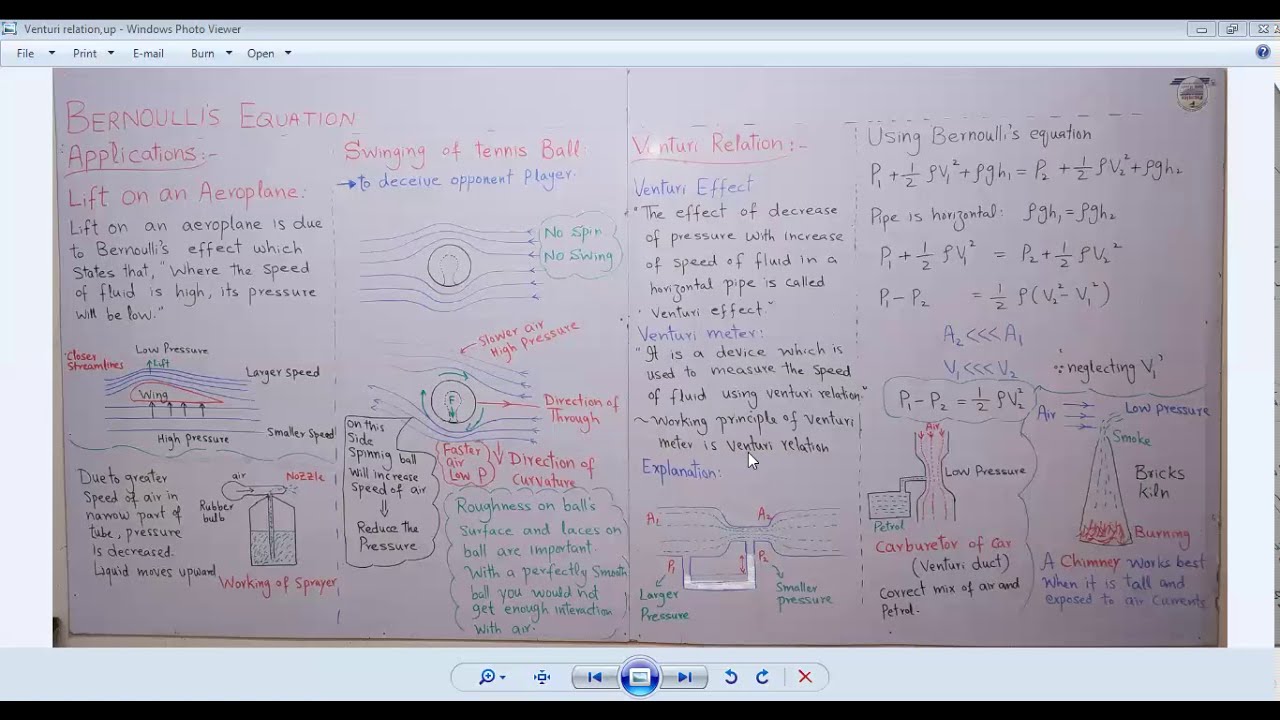 Venturi relation,up - Windows Photo Viewer
File Print E-mail Burn Open
BERNOULLI'S EQUATION
Applications:-
Lift on an Aeroplane:
Lift on an aeroplane is due
to Bernoulli's effect which
States that, "Where the speed
of fluid is high, its pressure
will be low."
Closer
Streamlines
Low Pressure
Lift
Larger speed
Wing
High pressure
Smaller Speed
Due to greater
Speed of air in
narrow part of
tube, pressure
is decreased.
Liquid moves upward
air
Nozzle
Rubber
bulb
Working of Sprayer
Swinging of tennis Ball:
to deceive opponent Player.
No Spin
No Swing
Slower air
High Pressure
F
Direction of
Through
on this
Side
Spinnig ball
will increase
Speed of air
Reduce the
Pressure
Faster
air
Low P
Direction of
curvature
Roughness on ball's
Surface and laces on
ball are important.
With a perfectly Smooth
ball you would not
get enough interaction
with air.
Venturi Relation:-
Venturi Effect
"The effect of decrease
of pressure with increase
of speed of fluid in a
horizontal pipe is called
Venturi effect."
Venturi meter:
"It is a device which is
used to measure the speed
of fluid using venturi relation."
~ Working principle of venturi
meter is venturi relation
Explanation:
A₁
A₂
P₁
P₂
Larger
Pressure
Smaller
pressure
Using Bernoulli's equation
P₁ + 1/2 ρV₁² + ρgh₁ = P₂ + 1/2 ρV₂² + ρgh₂
Pipe is horizontal: ρgh₁ = ρgh₂
P₁ + 1/2 ρV₁² = P₂ + 1/2 ρV₂²
P₁ - P₂ = 1/2 ρ(V₂² - V₁²)
A₂ <<< A₁
V₁ <<< V₂ ∵ neglecting V₁
P₁ - P₂ = 1/2 ρV₂²
Air
Low Pressure
Petrol
Carburetor of Car
(Venturi duct)
Correct mix of air and
Petrol.
Air
Low pressure
Smoke
Bricks
kiln
Burning
A Chimney works best
when it is tall and
exposed to air currents